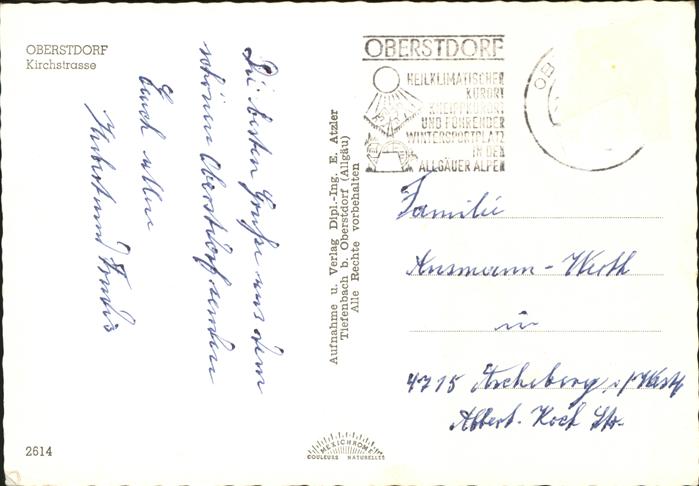 OBERSTDORF
Kirchstrasse
Die besten Grüße aus dem
schönen Oberstdorf senden
Euch allen
Hubert und
Aufnahme u. Verlag Dipl.-Ing. E. Atzler
Tiefenbach b. Oberstdorf (Allgäu)
Alle Rechte vorbehalten
OBERSTDORF
HEILKLIMATISCHER
KURORT
KNEIPPKURORT
UND FÜHRENDER
WINTERSPORTPLATZ
IN DEN
ALLGÄUER ALPEN
OB
Familie
Ansmann-Werth
in
4715 Ascheberg i/Westf
Albert-Koch Str.
2614
MEXICHROME
COULEURS NATURELLES